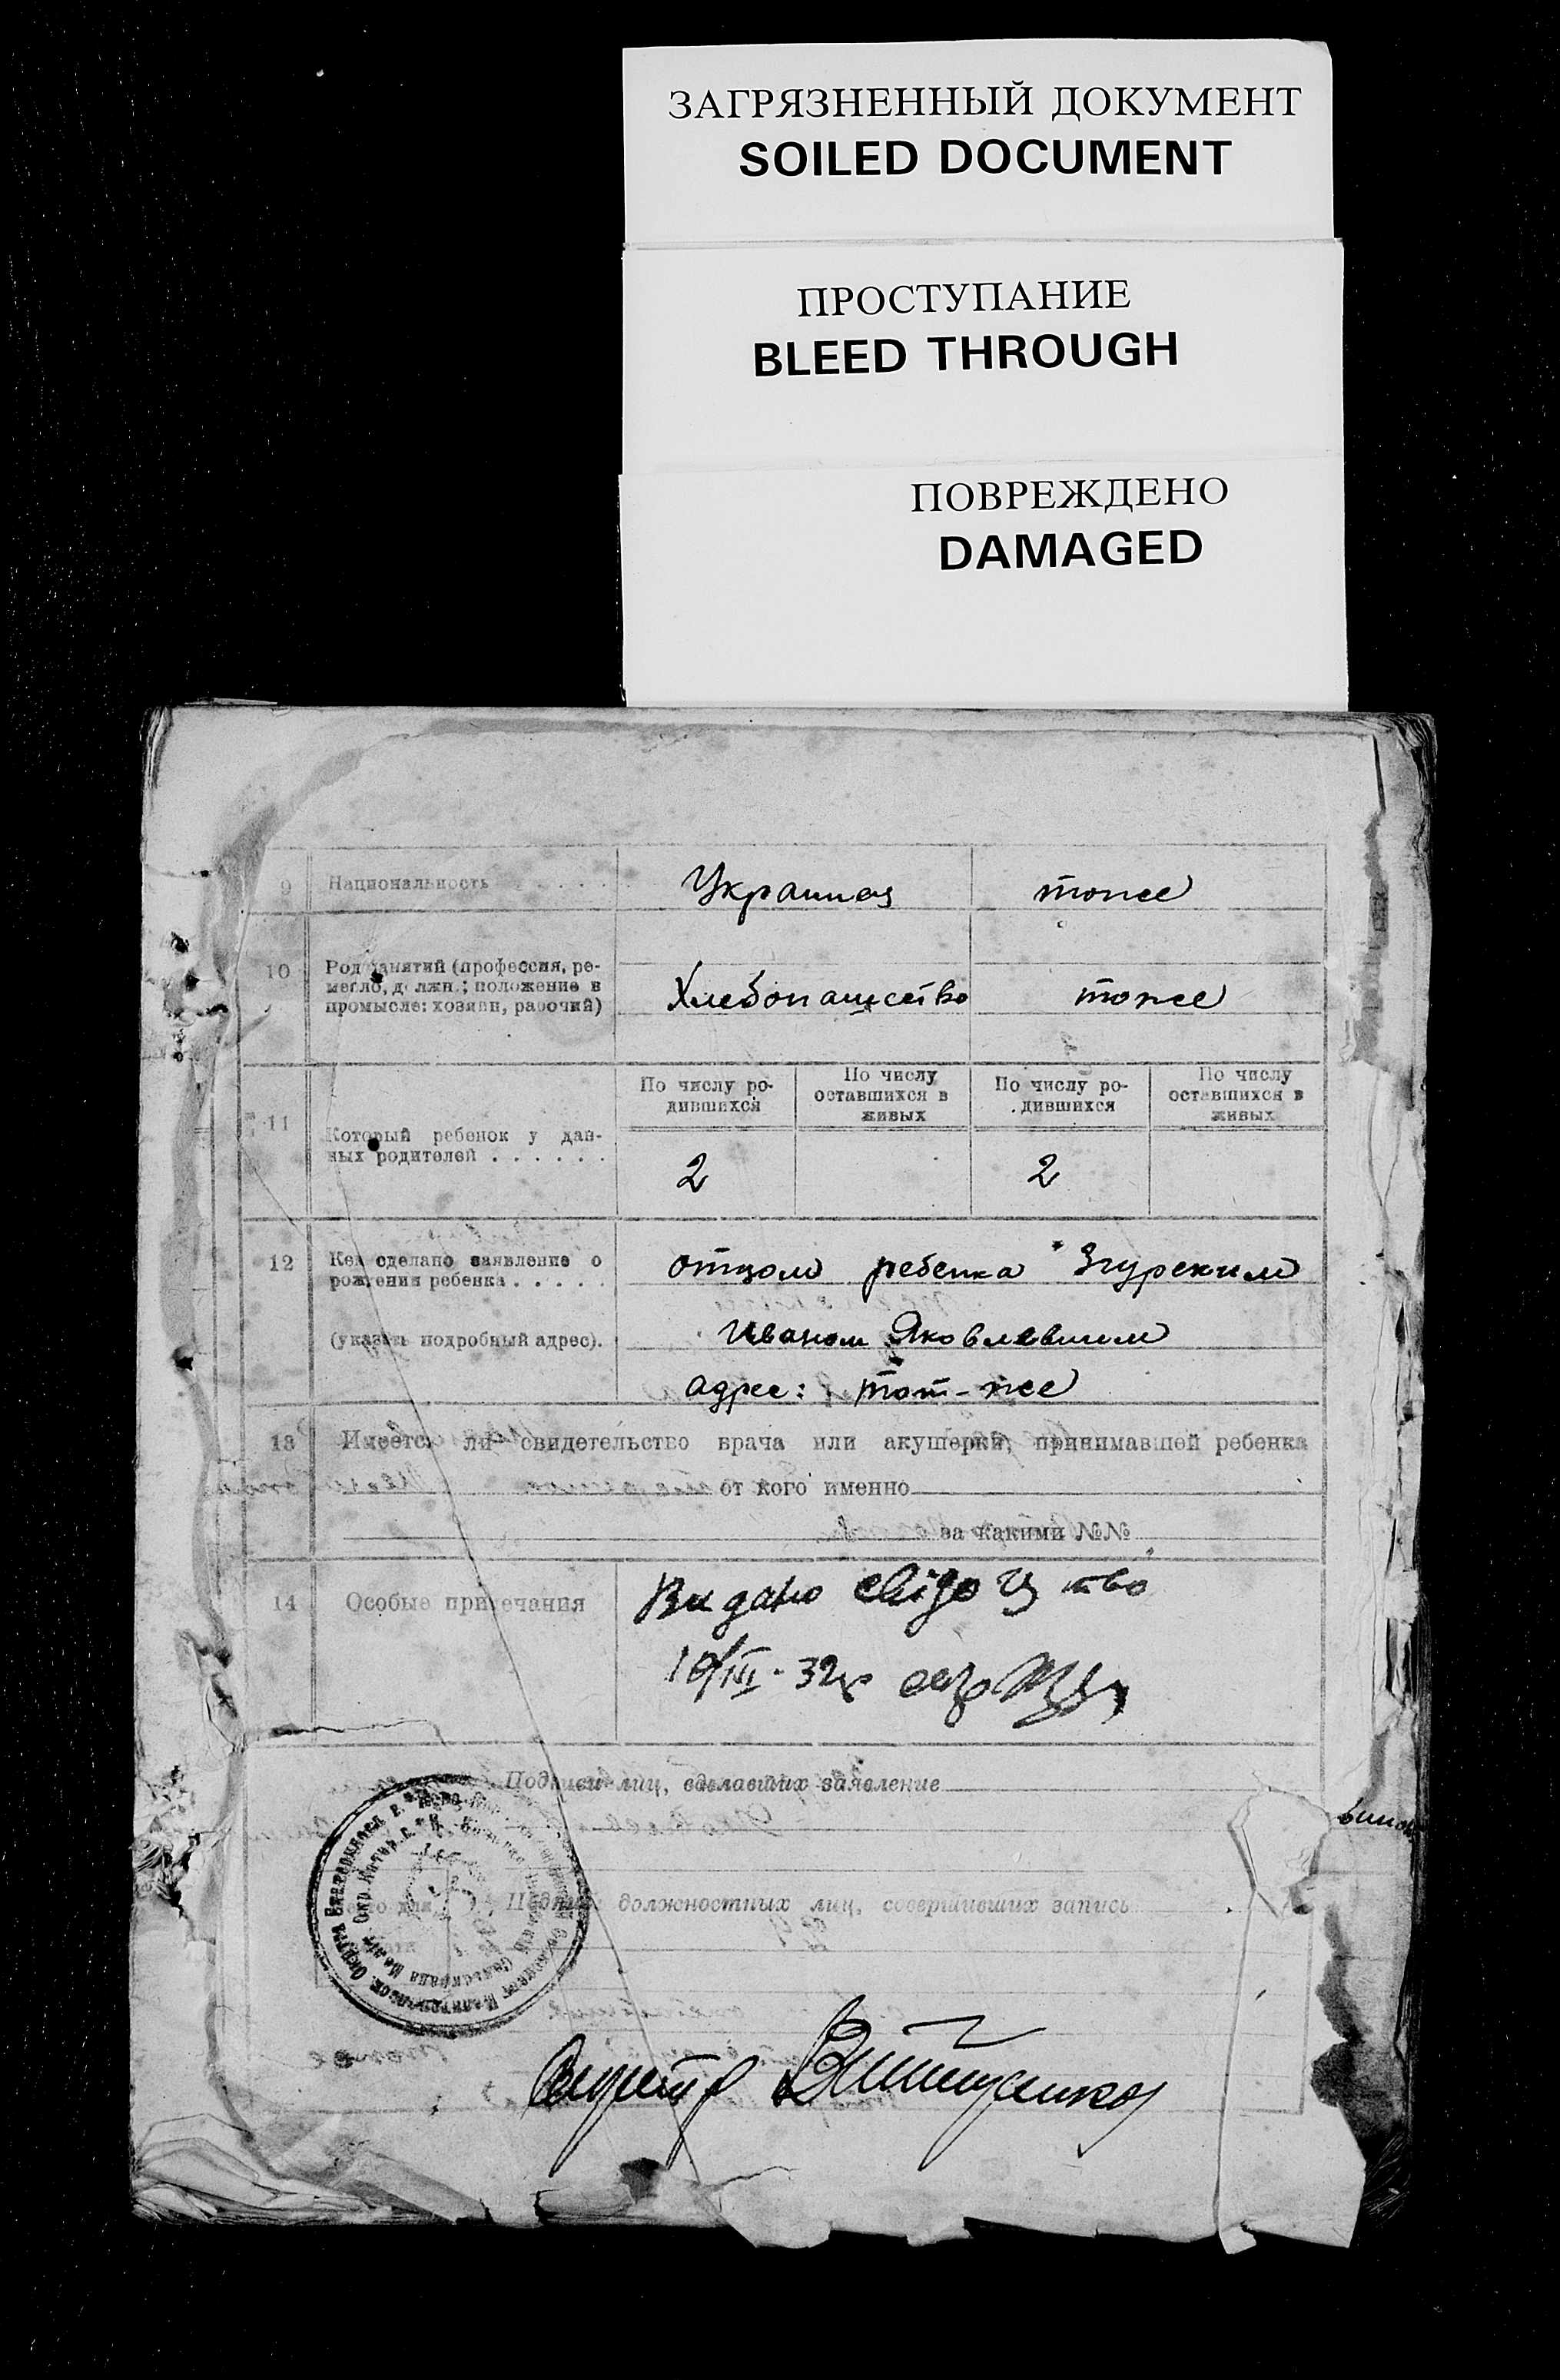 ЗАГРЯЗНЕННЫЙ ДОКУМЕНТ
SOILED DOCUMENT
ПРОСТУПАНИЕ
BLEED THROUGH
ПОВРЕЖДЕНО
DAMAGED
9 Национальность Украинец тоже
10 Род занятий (профессия, ре-
месло, должн.; положение в
промысле: хозяин, рабочий) Хлебопашество тоже
По числу ро- По числу По числу ро- По числу
дившихся оставшихся в дившихся оставшихся в
живых живых
11 Который ребенок у дан-
ных родителей . . . . . .
2 2
12 Кем сделано заявление о отцом ребенка Згурским
рождении ребенка . . . . .
(указать подробный адрес). Иваном Яковлевичем
адрес: тот-же
13 Имеется ли свидетельство врача или акушерки, принимавшей ребенка
от кого именно
за какими №№
14 Особые примечания Видано
32
Подписи лиц, сделавших заявление
Подписи должностных лиц, совершивших запись